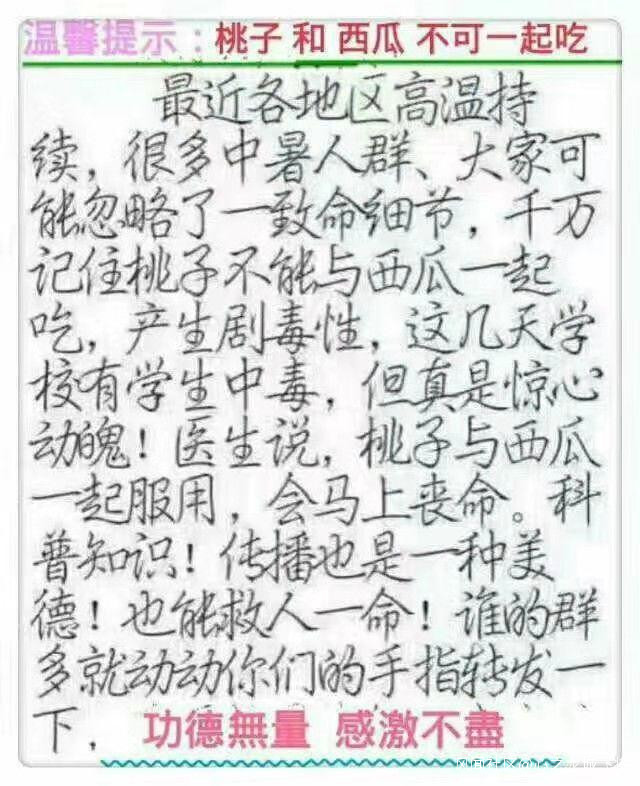 温馨提示：桃子 和 西瓜 不可一起吃
最近各地区高温持
续，很多中暑人群、大家可
能忽略了一致命细节，千万
记住桃子不能与西瓜一起
吃，产生剧毒性，这几天学
校有学生中毒，但真是惊心
动魄！医生说，桃子与西瓜
一起服用，会马上丧命。科
普知识！传播也是一种美
德！也能救人一命！谁的群
多就动动你们的手指转发一
下，功德無量 感激不盡